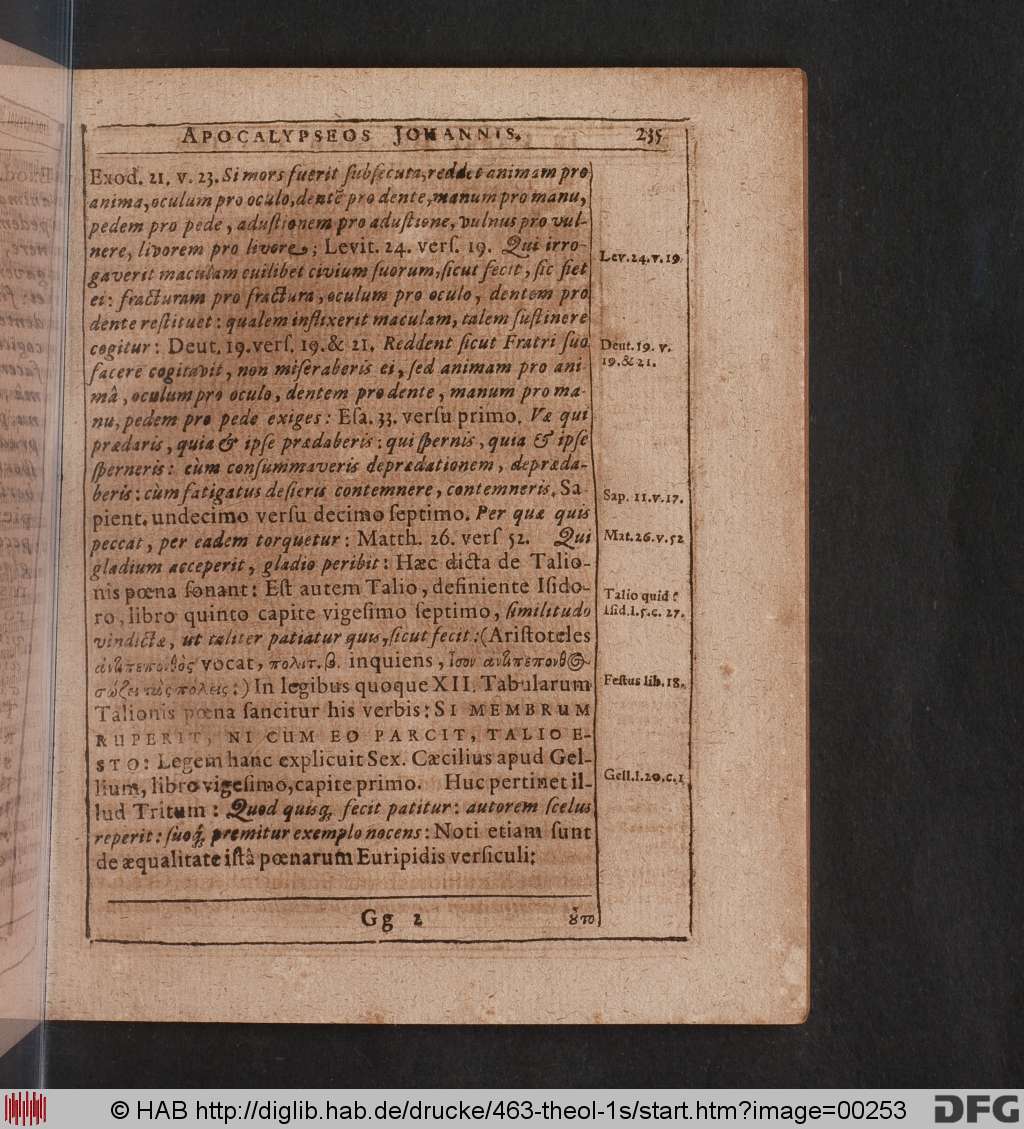 APOCALYPSEOS JOHANNIS. 235
Exod. 21. v. 23. Si mors fuerit ſubſecuta, reddet animam pro
anima, oculum pro oculo, dentē pro dente, manum pro manu,
pedem pro pede, aduſtionem pro aduſtione, vulnus pro vul-
nere, livorem pro livore; Levit. 24. verſ. 19. Qui irro-
gaverit maculam cuilibet civium ſuorum, ſicut fecit, ſic fiet
ei: fracturam pro fractura, oculum pro oculo, dentem pro
dente reſtituet: qualem inflixerit maculam, talem ſuſtinere
cogitur: Deut. 19. verſ. 19. & 21. Reddent ſicut Fratri ſuo
facere cogitavit, non miſeraberis ei, ſed animam pro ani-
mâ, oculum pro oculo, dentem pro dente, manum pro ma-
nu, pedem pro pede exiges: Eſa. 33. verſu primo. Væ qui
prædaris, quia & ipſe prædaberis: qui ſpernis, quia & ipſe
ſperneris: cùm conſummaveris deprædationem, depræda-
beris: cùm fatigatus deſieris contemnere, contemneris. Sa-
pient. undecimo verſu decimo ſeptimo. Per quæ quis
peccat, per eadem torquetur: Matth. 26. verſ 52. Qui
gladium acceperit, gladio peribit: Hæc dicta de Talio-
nis pœna ſonant: Eſt autem Talio, definiente Iſido-
ro, libro quinto capite vigeſimo ſeptimo, ſimilitudo
vindictæ, ut taliter patiatur quis, ſicut fecit: (Ariſtoteles
ἀντιπεπονθὸς vocat, πολιτ. β. inquiens, ἴσον ἀντιπεπονθὸς
σώζει τὰς πόλεις:) In legibus quoque XII. Tabularum
Talionis pœna ſancitur his verbis: SI MEMBRUM
RUPERIT, NI CUM EO PARCIT, TALIO E-
STO: Legem hanc explicuit Sex. Cæcilius apud Gel-
lium, libro vigeſimo, capite primo. Huc pertinet il-
lud Tritum: Quod quisq; fecit patitur: autorem ſcelus
reperit: ſuoq́; premitur exemplo nocens: Noti etiam ſunt
de æqualitate iſtâ pœnarum Euripidis verſiculi:
Gg 2 ὅτῳ
Lev. 24. v. 19.
Deut. 19. v.
19. & 21.
Sap. 11. v. 17.
Mat. 26. v. 52
Talio quid?
Iſid. l. 5. c. 27.
Feſtus lib. 18.
Gell. l. 20. c. 1
© HAB http://diglib.hab.de/drucke/463-theol-1s/start.htm?image=00253
DFG